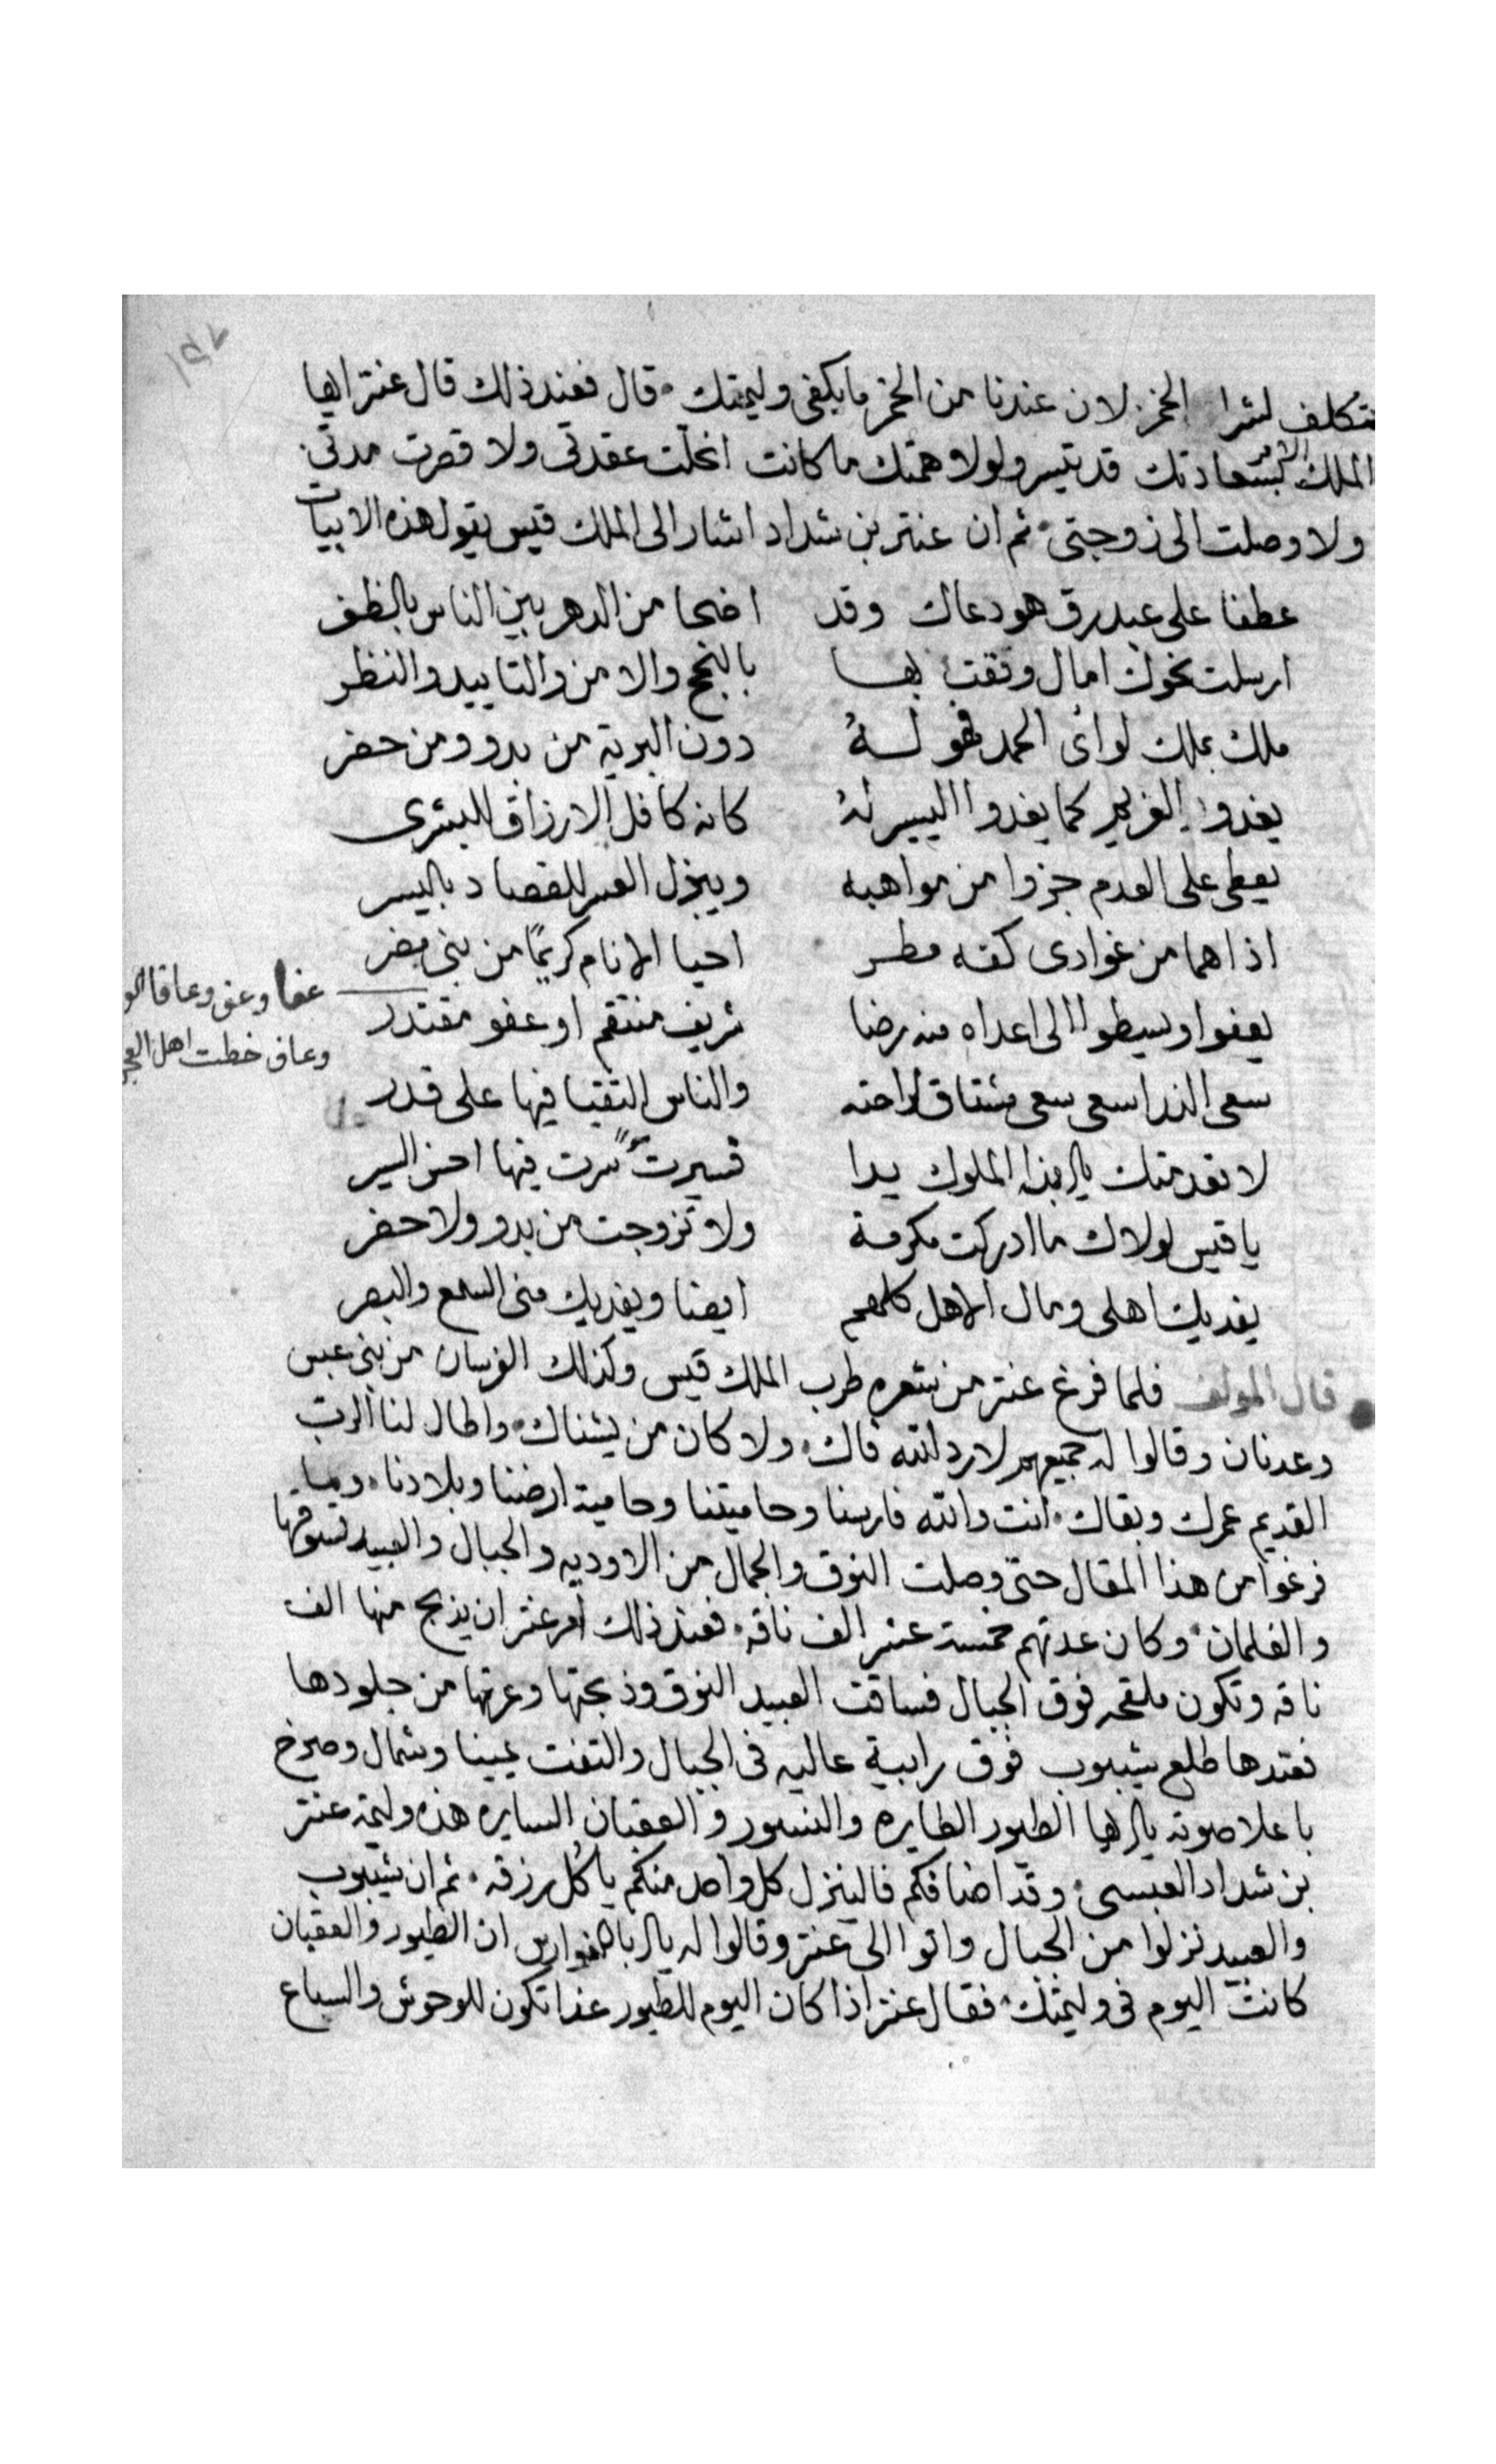 ١٥٧
تتكلف لشرا الخمر لان عندنا من الخمر ما يكفى وليمتك قال فعند ذلك قال عنتر ايها
الملك الامر بسعادتك قد تيسر ولولا همتك ما كانت انحلت عقدتى ولا قصرت مدتى
ولا وصلت الى زوجتى ثم ان عنتر بن شداد اشار الى الملك قيس يقول هذه الابيات
عطفا على عبد رق هو دعاك وقد اضحا من الدهر بين الناس بالظفر
ارسلت نحوك امال وثقت بها بالنجح والامن والتاييد والنظر
ملك بملك لوائ الحمد فهو له دون البرية من بدو ومن حضر
يغدوا الغريم كما يغدوا اليسير له كانه كافل الارزاق للبشرى
يعطى على العدم جزوا من مواهبه ويبذل العسر للقصاد باليسر
اذا هما من غوادى كفه مطر احيا الانام كريمًا من بنى مضر
يعفوا ويسطوا الى اعداه منه رضا شريف منتقم او عفو مقتدر
عفا وعف وعافا
وعاف خطت اهل
سعى سعى مشتاق لراحته والناس التقيا فيها على قدر
لا تعدمتك يا الملوك يدا سرت فيها احسن السير
يا قيس لولاك ما ادركت مكرمة ولا تزوجت من بدو ولا حضر
يفديك اهلى ومال الاهل كلهم ايضا ويفديك منى السمع والبصر
قال المولف فلما فرغ عنتر من شعره طرب الملك قيس وكذلك الفرسان من بنى عبس
وعدنان وقالوا له جميعهم لا رد الله فاك ولا كان من يشناك واطال لنا الرب
القديم عمرك وبقاك انت والله فارسنا وحاميتنا وحامية ارضنا وبلادنا وما
فرغوا من هذا المقال حتى وصلت النوق والجمال من الاوديه والجبال والعبيد تسوقها
والغلمان وكان عدتهم خمسة عشر الف ناقه فعند ذلك امر عنتر ان يذبح منها الف
ناقه وتكون ملقحه فوق الجبال فساقت العبيد النوق وذبحتها وعرتها من جلودها
فعندها طلع شيبوب فوق رابية عاليه فى الجبال والتفت يمينا وشمال وصرخ
باعلا صوته يا ايها الطيور الطايره والنسور والعقبان السايره هذه وليمة عنتر
بن شداد العبسى وقد اضافكم فالينزل كل واحد منكم ياكل رزقه ثم ان شيبوب
والعبيد نزلوا من الجبال واتوا الى عنتر وقالوا له يا ابا الفوارس ان الطيور والعقبان
كانت اليوم فى وليمتك فقال عنتر اذا كان اليوم للطيور غدا تكون للوحوش والسباع